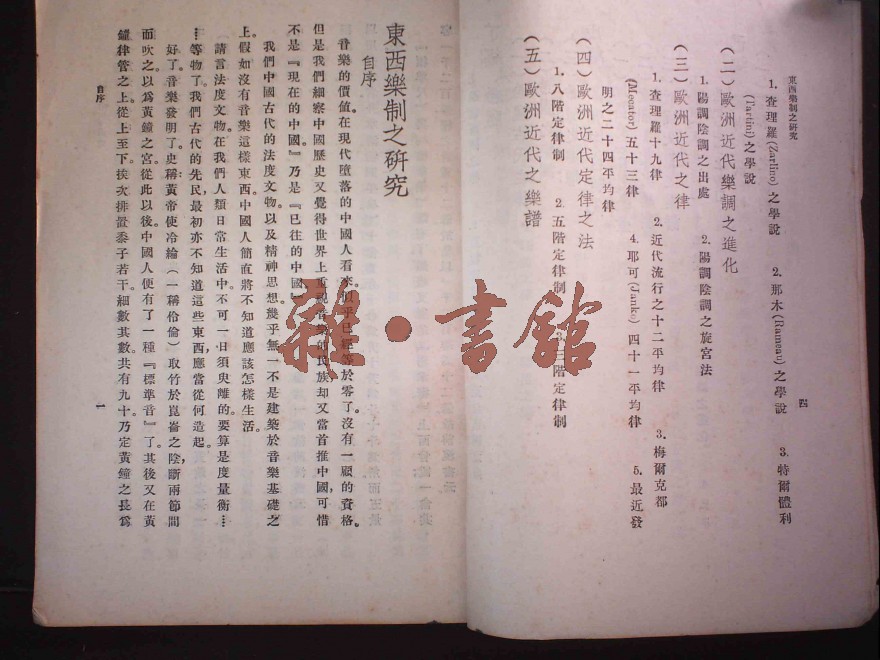 東西樂制之研究
1. 查理羅(Zarlino)之學說　2. 那木(Rameau)之學說　3. 特爾體利
(Tartini)之學說
(二)歐洲近代樂調之進化
1. 陽調陰調之出處　2. 陽調陰調之旋宮法
(三)歐洲近代之律
1. 查理羅十九律　2. 近代流行之十二平均律　3. 梅爾克都
(Mecator)五十三律　4. 耶可(Janko)四十一平均律　5. 最近發
明之二十四平均律
(四)歐洲近代定律之法
1. 八階定律制　2. 五階定律制　3. 三階定律制
(五)歐洲近代之樂譜
四
東西樂制之研究
自序
音樂的價值。在現代墮落的中國人看來。似乎已經等於零了。沒有一顧的資格。
但是我們細察中國歷史又覺得世界上重視音樂的民族却又當首推中國。可惜
不是『現在的中國』乃是『已往的中國』
我們中國古代的法度文物。以及精神思想。幾乎無一不是建築於音樂基礎之
上。假如沒有音樂這樣東西。中國人簡直將不知道應該怎樣生活。
請言法度文物。在我們人類日常生活中。不可一日須臾離的。要算是度量衡…
…等物了。我們古代的先民。最初亦不知道這些東西。應當從何造起。
好了。音樂發明了。史稱黃帝使冷綸(一稱伶倫)取竹於崑崙之陰。斷兩節間
而吹之。以爲黃鐘之宮。從此以後。中國人便有了一種『標準音』了。其後又在黃
鐘律管之上。從上至下。挨次排置黍子若干。細數其數。共有九十。乃定黃鐘之長爲
自序
一
雜·書館